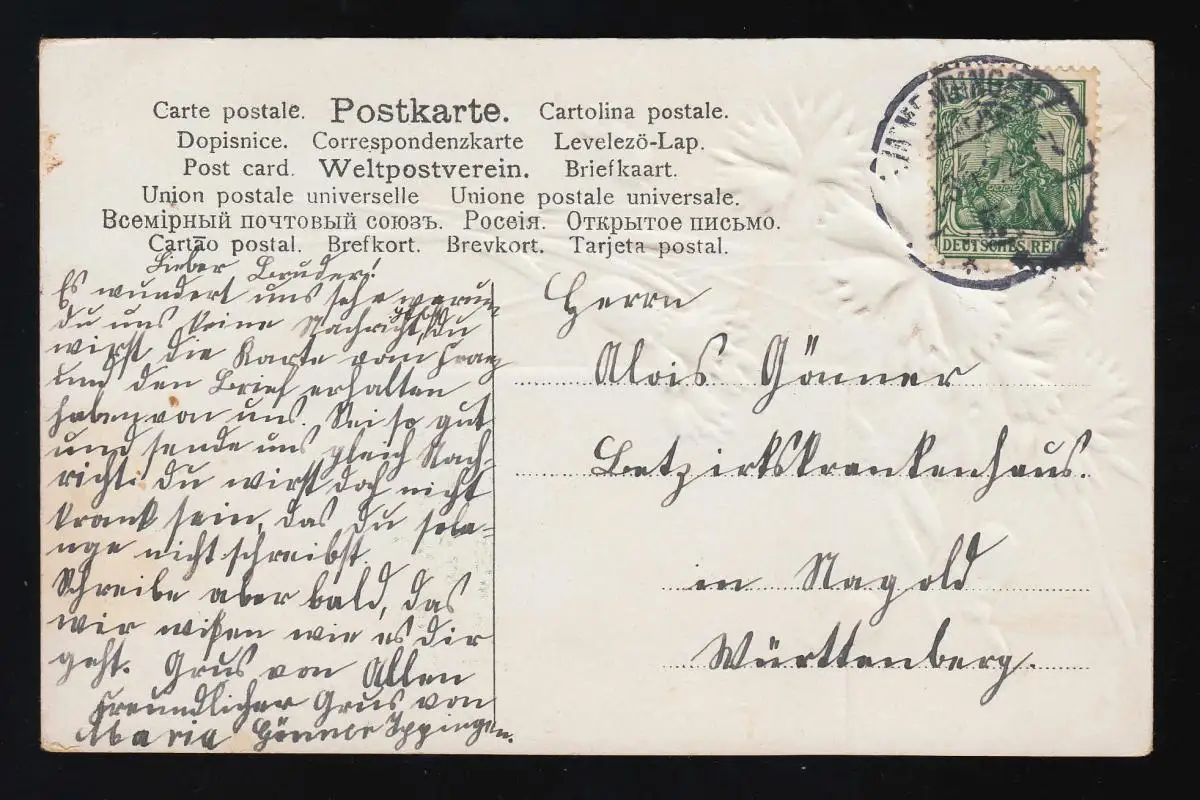 Carte postale. Postkarte. Cartolina postale.
Dopisnice. Correspondenzkarte Levelező-Lap.
Post card. Weltpostverein. Briefkaart.
Union postale universelle Unione postale universale.
Всемірный почтовый союзъ. Росеія. Открытое письмо.
Cartão postal. Brefkort. Brevkort. Tarjeta postal.
IMMENDINGEN
DEUTSCHES REICH
Lieber Bruder!
Es wundert uns sehr warum
du uns keine Nachricht, du
wirst die Karte vom Franz
und den Brief erhalten
haben von uns. Sei so gut
und sende uns gleich Nach-
richt. Du wirst doch nicht
krank sein, das du sola-
nge nicht schreibst.
Schreibe aber bald, das
wir wißen wie es dir
geht. Grus von Allen
Freundlicher Grus von
Maria Gönner Ippingen.
Herrn
Alois Gönner
Betzirkskrankenhaus.
in Nagold
Württenberg.